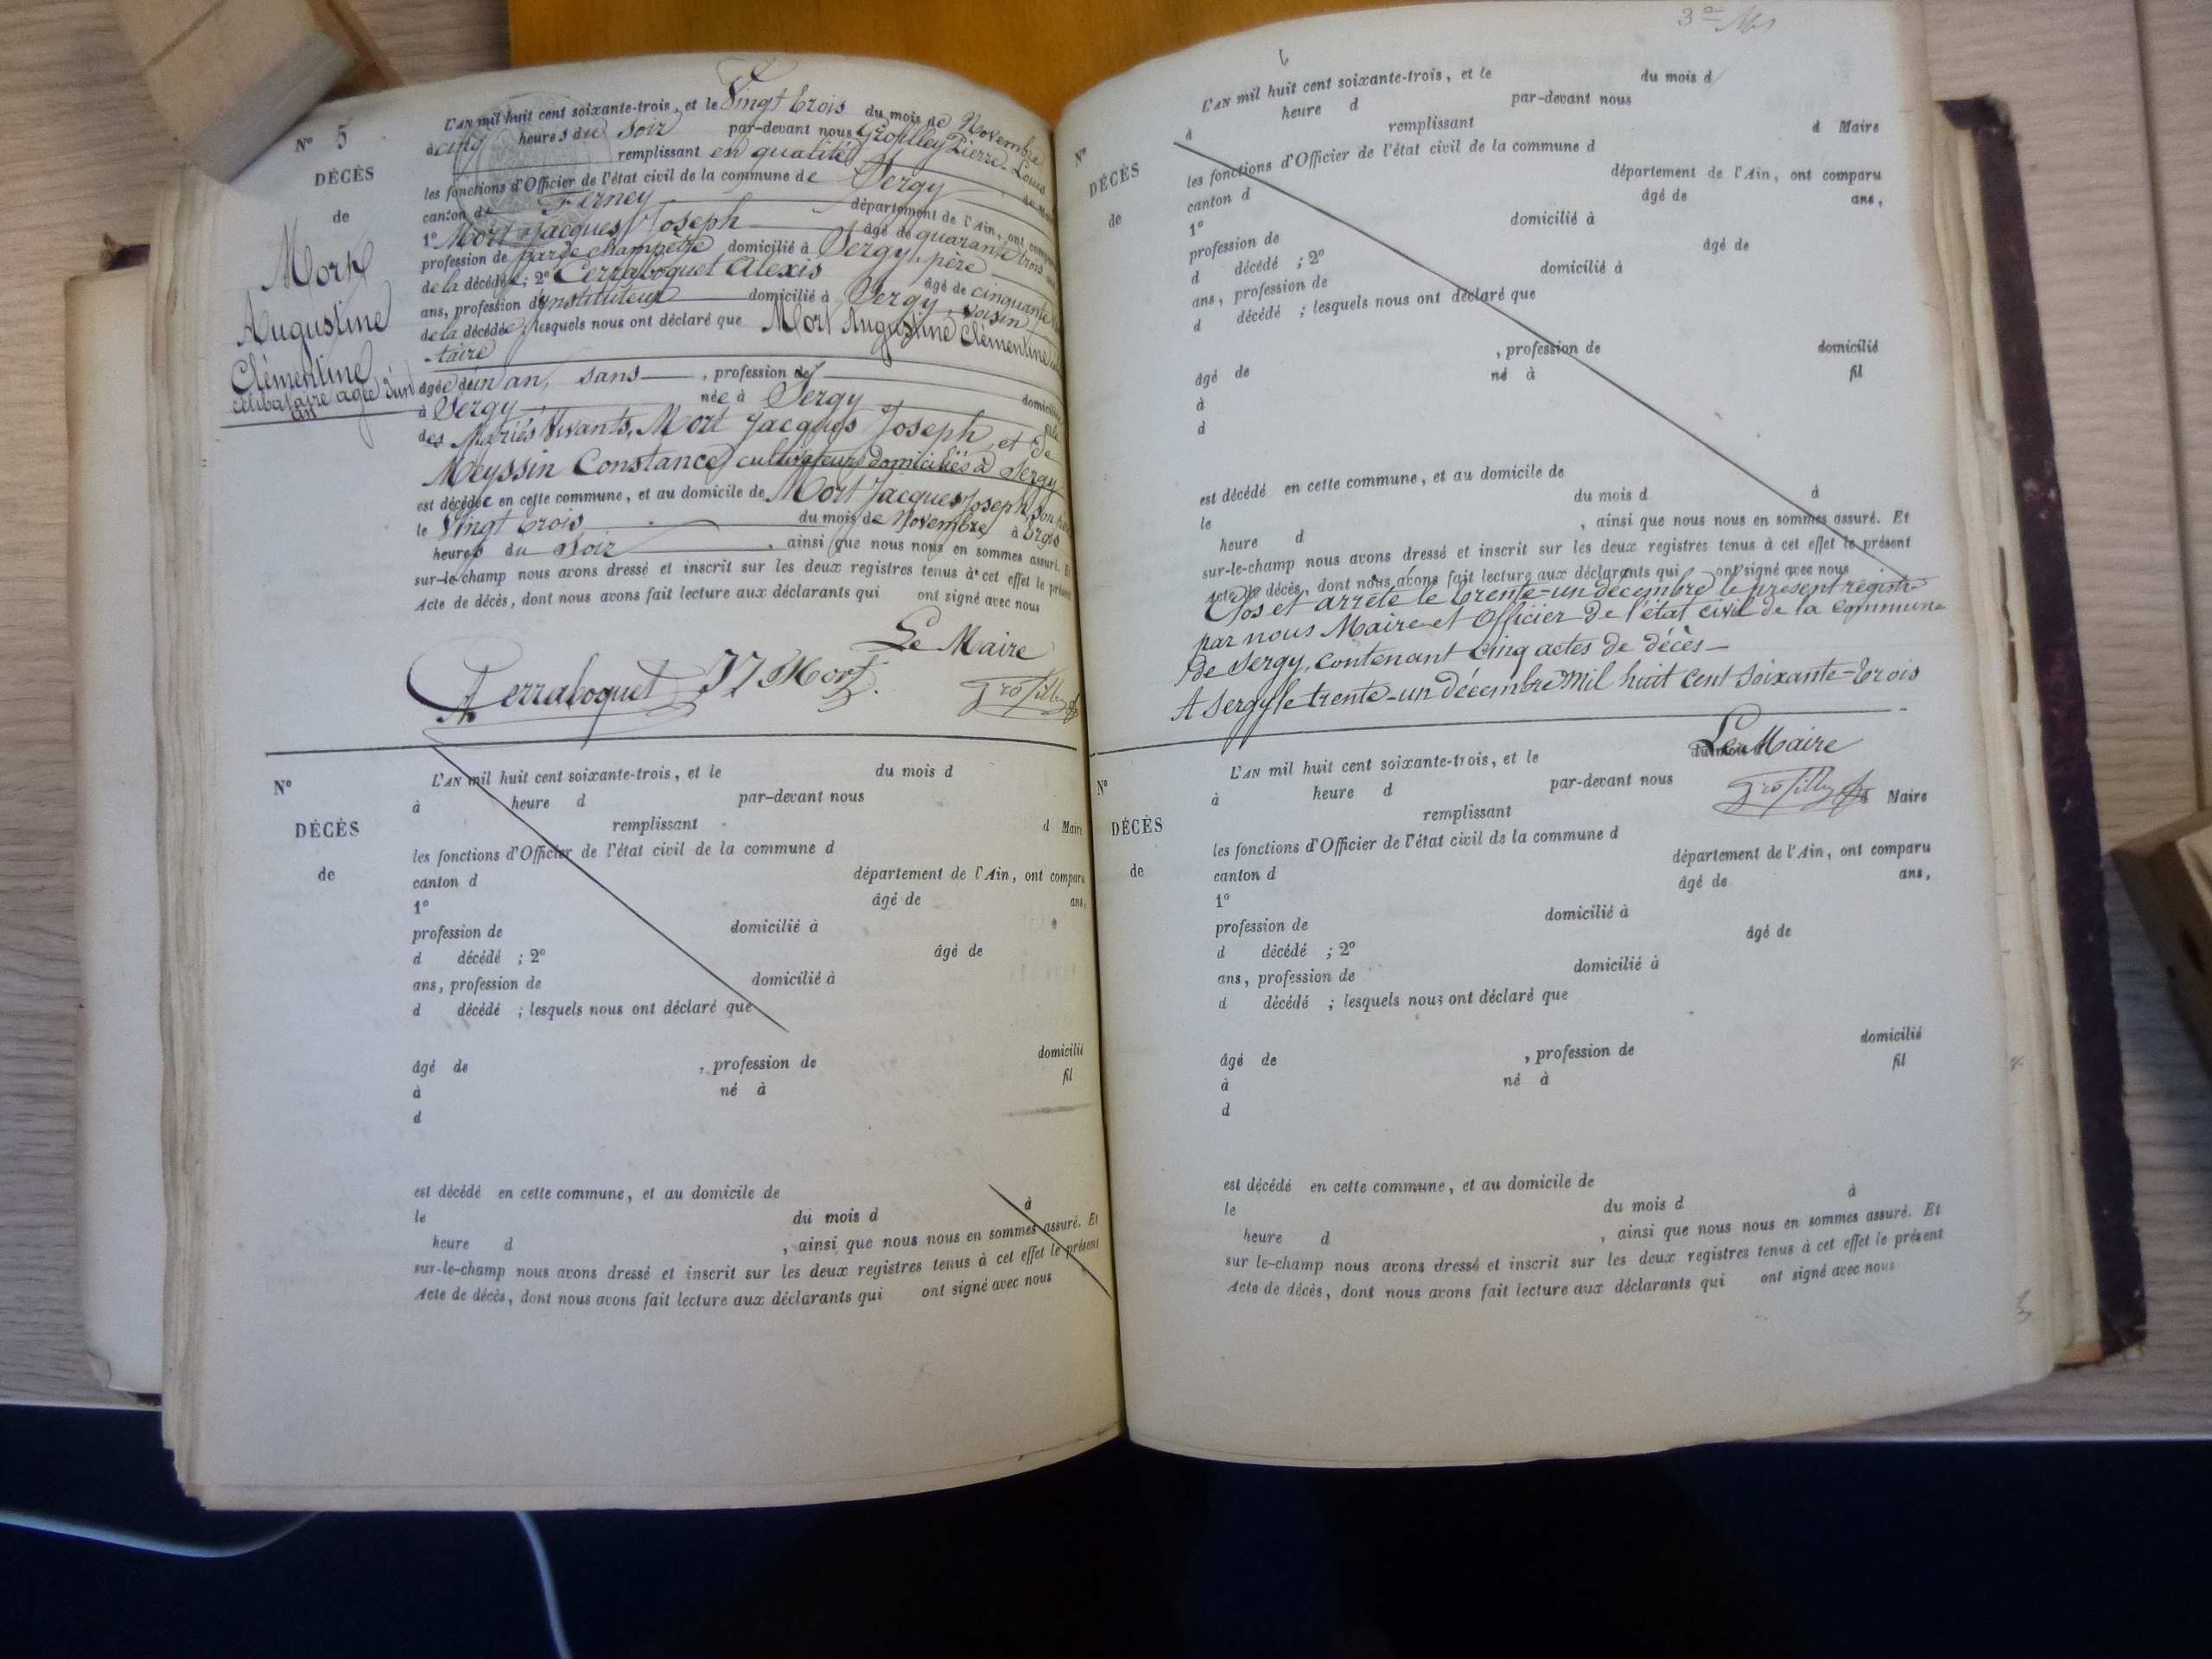 Nº 5
DÉCÈS
de
Mort
Augustine
Clémentine
célibataire agée d'un
an
L'AN mil huit cent soixante-trois, et le Vingt trois du mois de Novembre
à cinq heures du soir par-devant nous Grosfilley Pierre-Louis
remplissant en qualité de Maire
les fonctions d'Officier de l'état civil de la commune de Sergy
canton de Ferney département de l'Ain, ont comparu
1º Mort Jacques Joseph âgé de quarante trois ans,
profession de garde champetre domicilié à Sergy, père
de la décédée; 2º Perraboquet Alexis âgé de cinquante
ans, profession d'instituteur domicilié à Sergy, voisin
de la décédée; lesquels nous ont déclaré que Mort Augustine Clémentine
-taire
âgée de un an, sans, profession de domiciliée
à Sergy née à Sergy fille
des Mariés Vivants, Mort Jacques Joseph, et de
Meyssin Constance cultivateurs domiciliés à Sergy
est décédée en cette commune, et au domicile de Mort Jacques Joseph, son père
le Vingt trois du mois de Novembre à trois
heures du Soir, ainsi que nous nous en sommes assuré. Et
sur-le-champ nous avons dressé et inscrit sur les deux registres tenus à cet effet le présent
Acte de décès, dont nous avons fait lecture aux déclarants qui ont signé avec nous
Le Maire
A. Perraboquet JJ Mort Grosfilley
Nº
DÉCÈS
de
L'AN mil huit cent soixante-trois, et le du mois d
à heure d par-devant nous
remplissant d Maire
les fonctions d'Officier de l'état civil de la commune d
canton d département de l'Ain, ont comparu
1º âgé de ans,
profession de domicilié à
d décédé ; 2º âgé de
ans, profession de domicilié à
d décédé ; lesquels nous ont déclaré que
âgé de , profession de domicilié
à né à fil
d
est décédé en cette commune, et au domicile de
le du mois d à
heure d , ainsi que nous nous en sommes assuré. Et
sur-le-champ nous avons dressé et inscrit sur les deux registres tenus à cet effet le présent
Acte de décès, dont nous avons fait lecture aux déclarants qui ont signé avec nous
Nº
DÉCÈS
de
L'AN mil huit cent soixante-trois, et le du mois d
à heure d par-devant nous
remplissant d Maire
les fonctions d'Officier de l'état civil de la commune d
canton d département de l'Ain, ont comparu
1º âgé de ans,
profession de domicilié à
d décédé ; 2º âgé de
ans, profession de domicilié à
d décédé ; lesquels nous ont déclaré que
âgé de , profession de domicilié
à né à fil
d
est décédé en cette commune, et au domicile de
le du mois d à
heure d , ainsi que nous nous en sommes assuré. Et
sur-le-champ nous avons dressé et inscrit sur les deux registres tenus à cet effet le présent
Acte de décès, dont nous avons fait lecture aux déclarants qui ont signé avec nous
Clos et arrêté le trente-un décembre le présent registre
par nous Maire et Officier de l'état civil de la commune
de Sergy, contenant Cinq actes de décès
A Sergy le trente-un décembre mil huit cent Soixante-trois
Le Maire
Grosfilley
Nº
DÉCÈS
de
L'AN mil huit cent soixante-trois, et le du mois d
à heure d par-devant nous
remplissant d Maire
les fonctions d'Officier de l'état civil de la commune d
canton d département de l'Ain, ont comparu
1º âgé de ans,
profession de domicilié à
d décédé ; 2º âgé de
ans, profession de domicilié à
d décédé ; lesquels nous ont déclaré que
âgé de , profession de domicilié
à né à fil
d
est décédé en cette commune, et au domicile de
le du mois d à
heure d , ainsi que nous nous en sommes assuré. Et
sur le-champ nous avons dressé et inscrit sur les deux registres tenus à cet effet le présent
Acte de décès, dont nous avons fait lecture aux déclarants qui ont signé avec nous